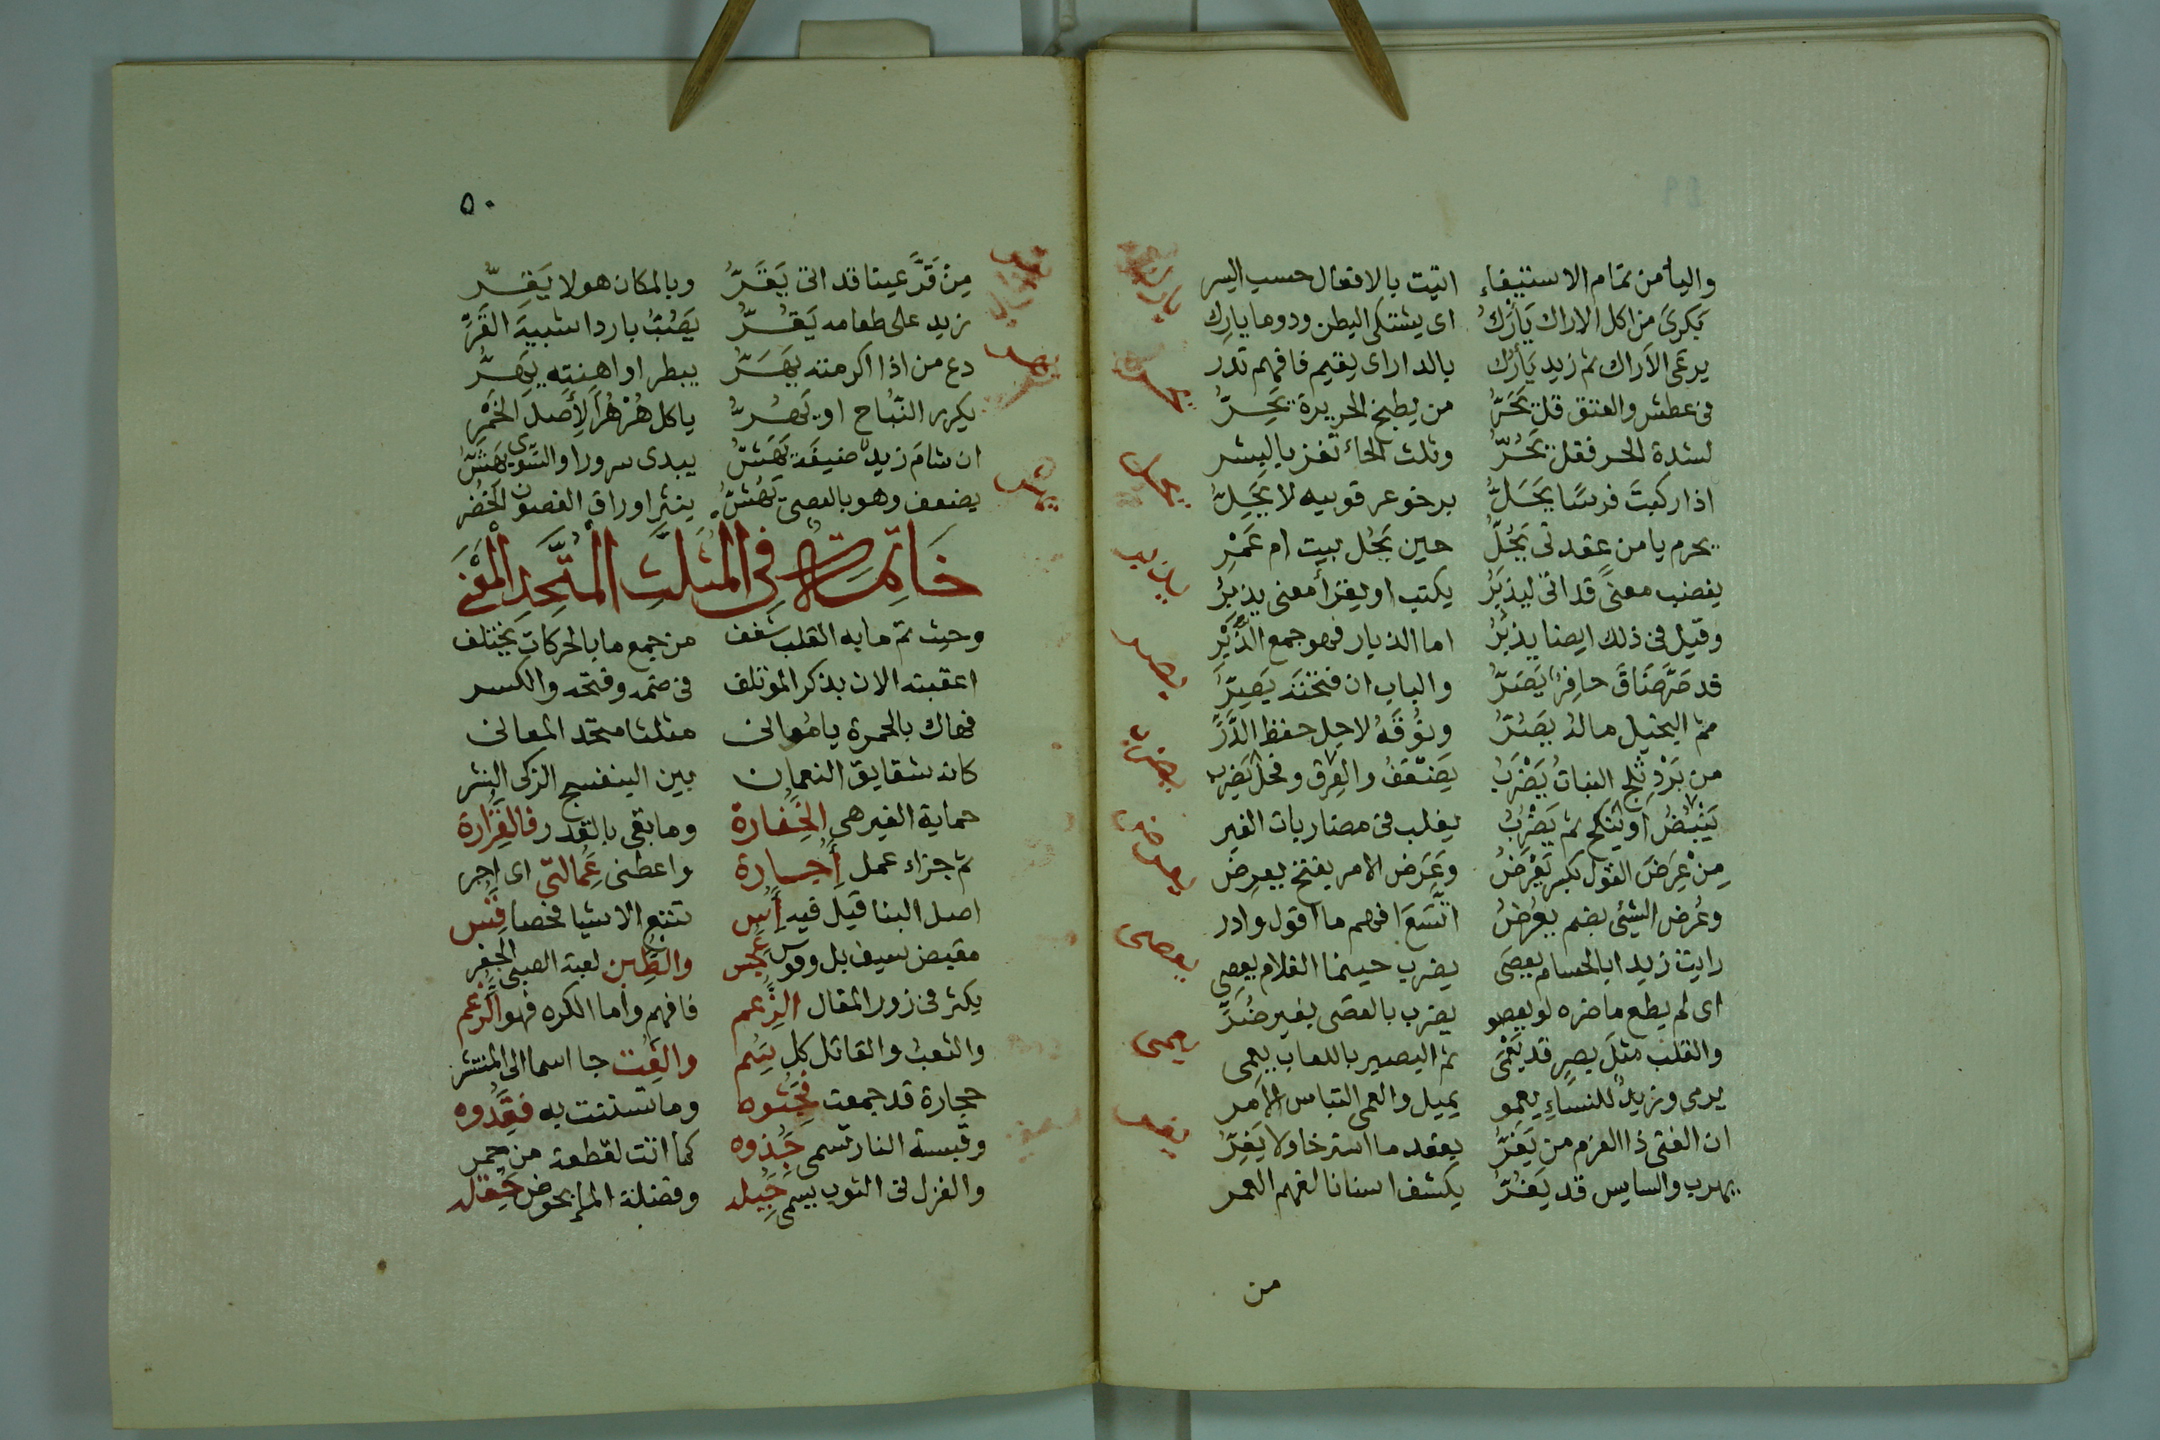 واليا من تمام الاستيفاء اتيت بالافعال حسب اليسر
بكرى من اكل الاراك يَأرَكُ اى يشتكى البطن ودوما يارِك
يرعى الاَراك ثم زيد يَأرُك بالدار اى يقيم فافهم تدر
فى عطش والعتق قل يَحَرُّ من يطبخ الحريرة يَحِرُّ
لشدة الحر فقل يَحُرُّ وثلث الحاء تفز باليسر
اذا ركبتَ فرسًا يَحَلُّ برخو عرقوبيه لا يَحِلُّ
يحرم يا من عقدتى يَحُلُّ حين يحُل بيت ام عَمْرِ
يغضب معنًى قد اتى ليذبَرُ يكتب او يقرأ معنى يذبِرُ
وقيل فى ذلك ايضا يذبُرُ اما الذبار فهو جمع الذَّبْرِ
قد صَرَّ ضَاقَ حافِرٌ يَصَرُّ والباب ان فتحته يَصِرُّ
ثم البخيل ماله يَصُرُّ ونُوقَهُ لاجل حفظ الدَّرِّ
من بَرْدِ ثلج النباتُ يَضْرَبُ يَضْعَفُ والعِرق وفحل يَضرِبُ
يَنْبُضُ او يَنكح ثم يَضْرُبُ يغلب فى مضاربات الغير
مِنْ عِرَضَ القول بكير يَعْرَضُ وعَرَض الامر بفتح يعرِضُ
وعُرض الشيئ بضم يعرُضُ اتَّسَعَا فافهم ما اقول وادر
رايت زيدا بالحسام يعصَى يضرب حينما الغلام يعصِى
اى لم يطع ما ضره لو يعصو يضرب بالعصى بغير ضُرِّ
والقلب مثل بصرٍ قد يَعْمَى ثم البعير باللعاب يعمِى
يرمى وزيدٌ للنساءِ يعمو يميل والعمى التباس الامر
ان الفتى ذا العزم من يَفَرُّ يعقد ما استرخا ولا يَفِرُّ
يهرب والسايس قد يَفُرُّ يكشف اسنانا لفهم العمر
من
يأرك
يحر
يحل
يذبر
يصر
يضرب
يعرض
يعصى
يعمى
يفر
٥٠
مِنْ قَرَّ عينا قد اتى يَقَرُّ وبالمكان هو لا يَقِرُّ
زيد على طعامه يَقُرُّ يَصُبُّ باردا شبيهَ القَرِّ
دع من اذا اكرمته يَهَرُّ يبطر او اهنته يَهِرُّ
يكرر النُّباح او يَهُرُّ ياكل هُرْهُراً لِأَصل الخَمْرِ
ان شامَ زيدٌ ضيفَه يَهَشُّ يبدى سرورا والشوى يهِشُّ
يضعف وهو بالعصى يَهُشُّ ينثر اوراق الغصون الخُضْر
خَاتِمَة فِى المُثَلَّثِ المُتَّحِدِ المَعْنَى
وحيث تم ما به القلب شغف من جمع ما بالحركات يختلف
اعقبته الان بذكر المؤتلف فى ضمه وفتحه والكسر
فهاك بالحمرة يا مُعالى مثلثا متحد المعانى
كانه شقايق النعمان بين البنفسج الزكى النشر
حماية الغير هى الخَُِفارة وما بقى بالقدر فالقَُِرارة
ثم جزاء عمل أُِجارة واعطنى عُِمالتى اى اجر
اصل البنا قيل فيه أَُِس تتبع الاشيا فحصا فقَُِس
مقبض سيف بل وقوس عَُِجس والطَُِّبن لعبة الصبى الجفر
يكثر فى زور المقال الزَُِّعم فافهم واما الكره فهو الرَُِّغم
والثعبُ والقاتل كل يُسم جا اسما الى المنتشر
حجارة قد جمعت فجَُِثوه وما تسننت به فقَُِدوه
وقبسة النار تسمى جَُِذوه كما اتت لقطعة من جمر
والغزل فى الثوب يسمى وفضلة الماء بحوض
يهر
يهش